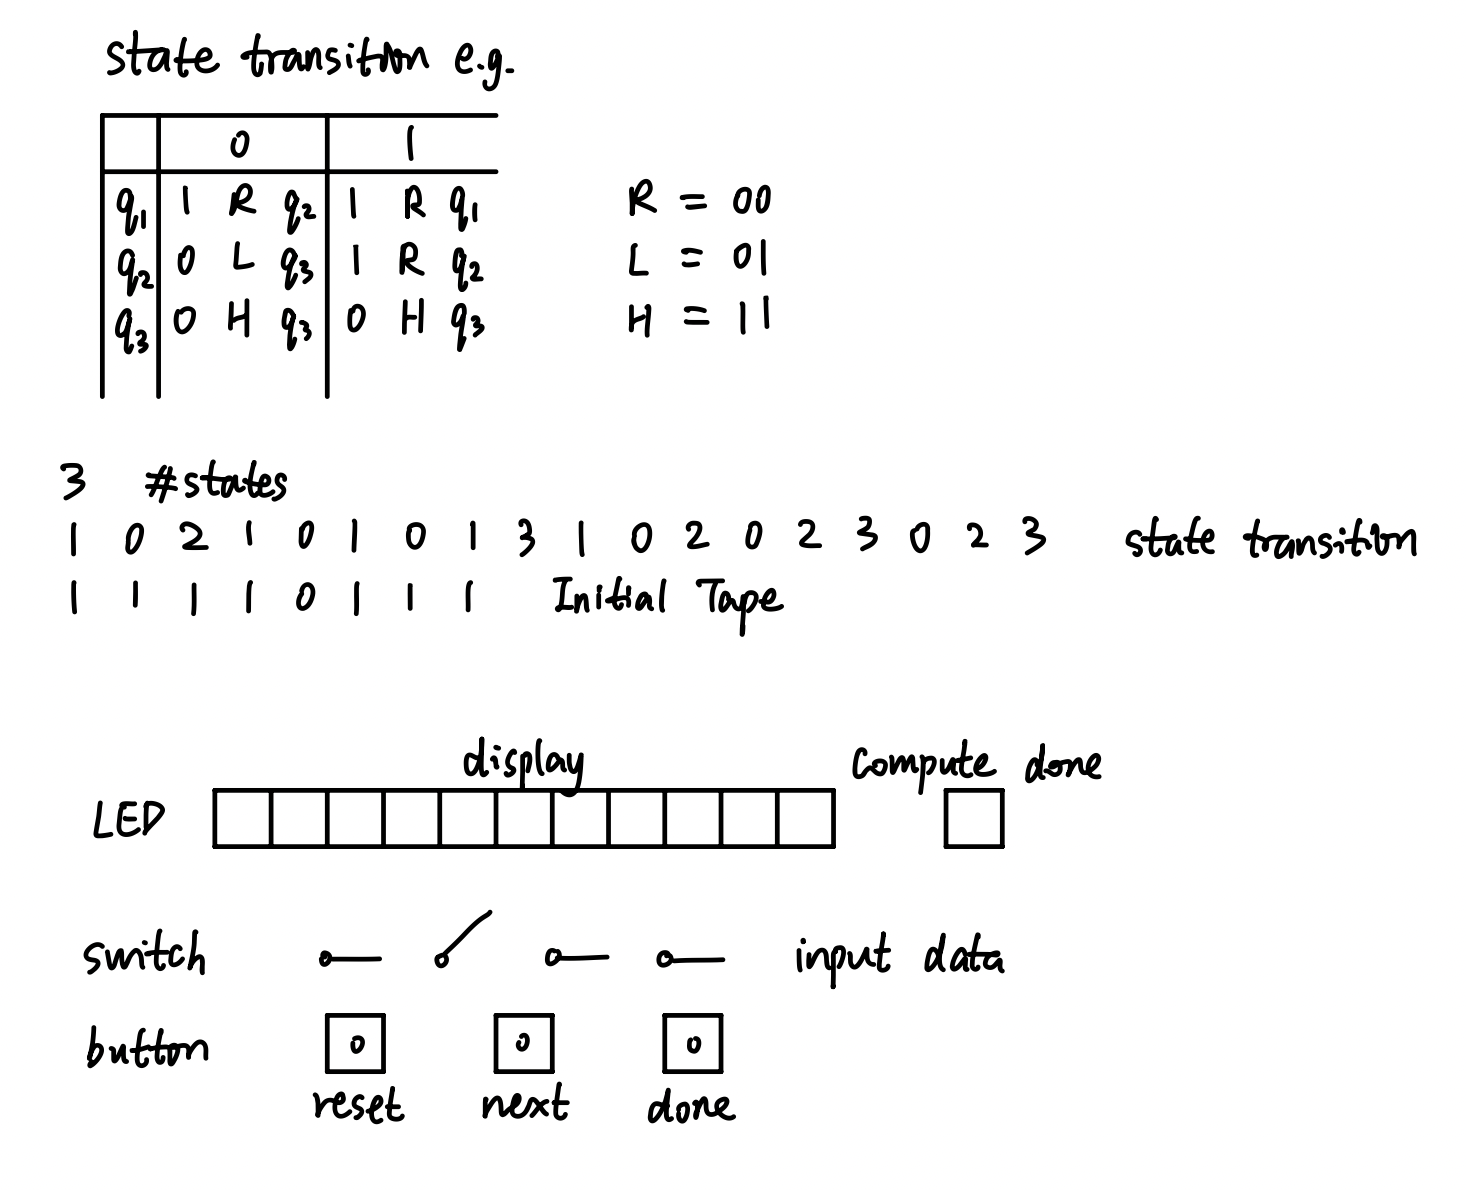 state transition e.g.
0 1
q1 1 R q2 1 R q1 R = 00
q2 0 L q3 1 R q2 L = 01
q3 0 H q3 0 H q3 H = 11
3 #states
1 0 2 1 0 1 0 1 3 1 0 2 0 2 3 0 2 3 state transition
1 1 1 1 0 1 1 1 Initial Tape
display compute done
LED
switch input data
button
reset next done